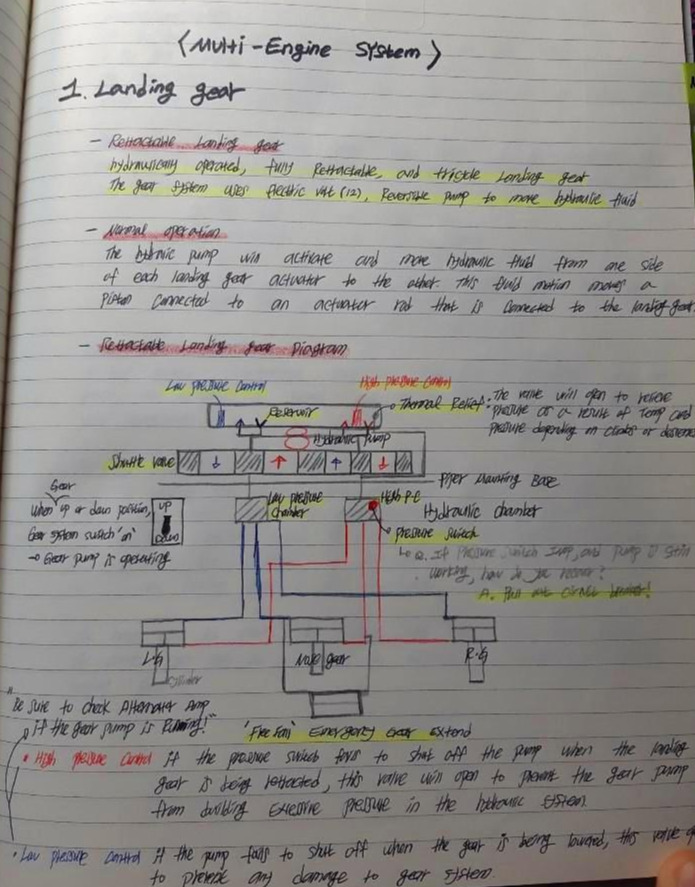 <Multi-Engine System>
1. Landing gear
- Retractable Landing gear
hydraulically operated, fully Retractable, and tricycle Landing gear
The gear system uses Electric volt (12), Reversible pump to move hydraulic fluid
- Normal operation
The hydraulic pump will activate and move hydraulic fluid from one side
of each landing gear actuator to the other. This fluid motion moves a
Piston connected to an actuator rod that is connected to the landing gear.
- Retractable Landing gear Diagram
Low pressure Control
High pressure Control
Reservoir
Thermal Relief: The valve will open to relieve
pressure as a result of Temp and
pressure depending on climbs or
Hydraulic Pump
Shuttle valve
Piper Mounting Base
Gear
When up or down position,
Gear system switch 'on'
→ Gear pump is operating
UP
DOWN
Low pressure
chamber
High P.C
Hydraulic chamber
pressure switch
Q. If pressure switch and pump is still
working, how do you
A. Pull out circuit breaker!
L.G
Nose gear
R.G
Cylinder
"Be sure to check Alternator Amp
if the gear pump is Running!"
'Free Fall' Emergency Gear extend
• High pressure Control if the pressure switch fails to shut off the pump when the landing
gear is being retracted, this valve will open to prevent the gear pump
from building excessive pressure in the hydraulic system.
• Low pressure Control if the pump fails to shut off when the gear is being lowered, this valve
to prevent any damage to gear system.